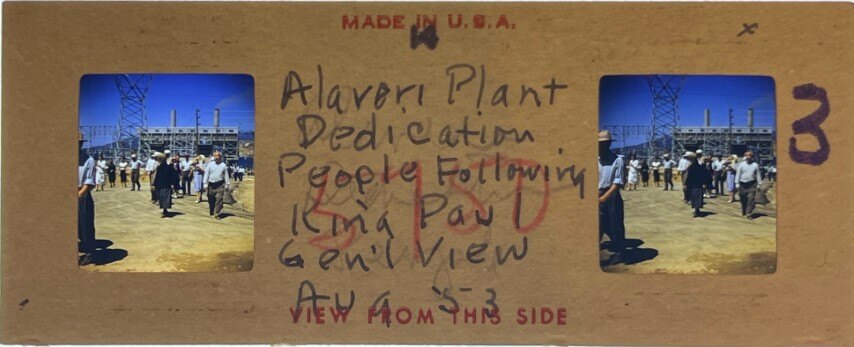 MADE IN U.S.A.
14
x
3
Alaveri Plant
Dedication
People Following
King Paul
Gen'l View
Aug '53
VIEW FROM THIS SIDE